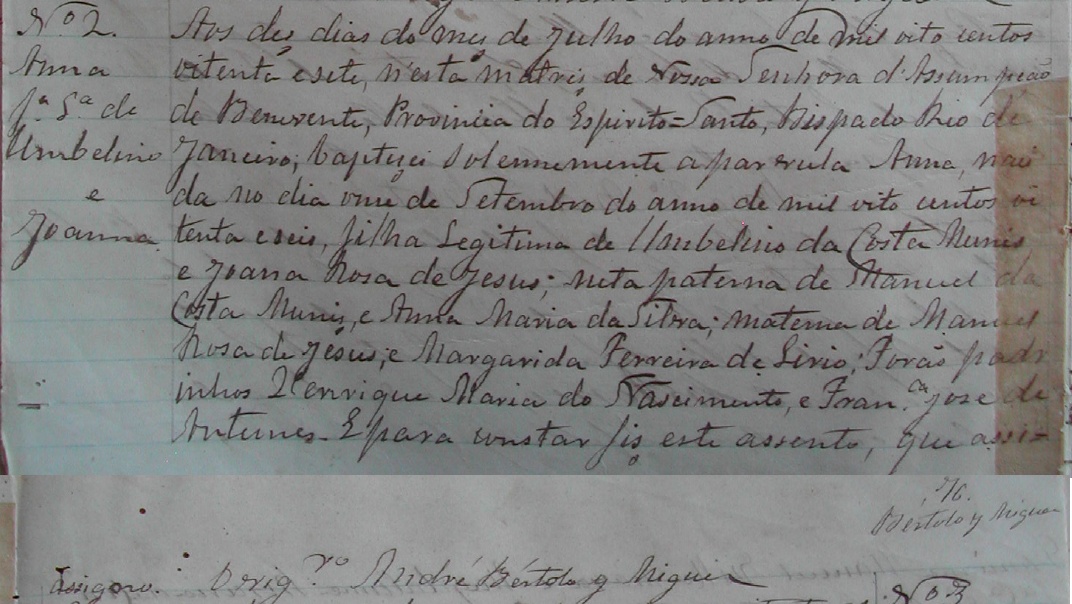 Nº 2.
Anna
fª Lª de
Umbelino
e
Joanna.
Aos dés dias do mes de Julho do anno de mil oito centos
oitenta e sete, n'esta matris de Nossa Senhora d'Assumpção
de Benevente, Provincia do Espirito=Santo, Bispado Rio de
Janeiro; baptisei solennemente a parvula Anna, nasi
da no dia onse de Setembro do anno de mil oito centos oi
tenta e seis, filha Legitima de Umbelino da Costa Munis
e Joana Rosa de Jesus; neta paterna de Manuel da
Costa Munis, e Anna Maria da Silva; materna de Manuel
Rosa de Jesus, e Margarida Ferreira de Sirio; Forão padr
inhos Henrique Maria do Nascimento, e Fran.ca Jose de
Antunes. E para constar fis este assento, que assi=
76.
Bértolo y Niguer
assigno. O vig.ro André Bértolo y Niguer
Nº 3